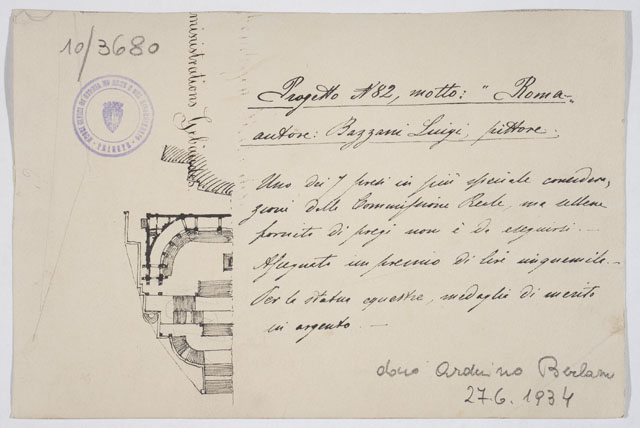 10/3680
ministrations Gebäudes
Progetto N 82, motto: "Roma"
autore: Bazzani Luigi, pittore.
Uno dei 7 presi in più speciale considera-
zioni dalla Commissione Reale, ma sebbene
fornito di pregi non è da eseguirsi. —
Assegnato un premio di lire cinquemila. —
Per la statua equestre, medaglia di merito
in argento. —
dono Arduino Berlam
27.6.1934